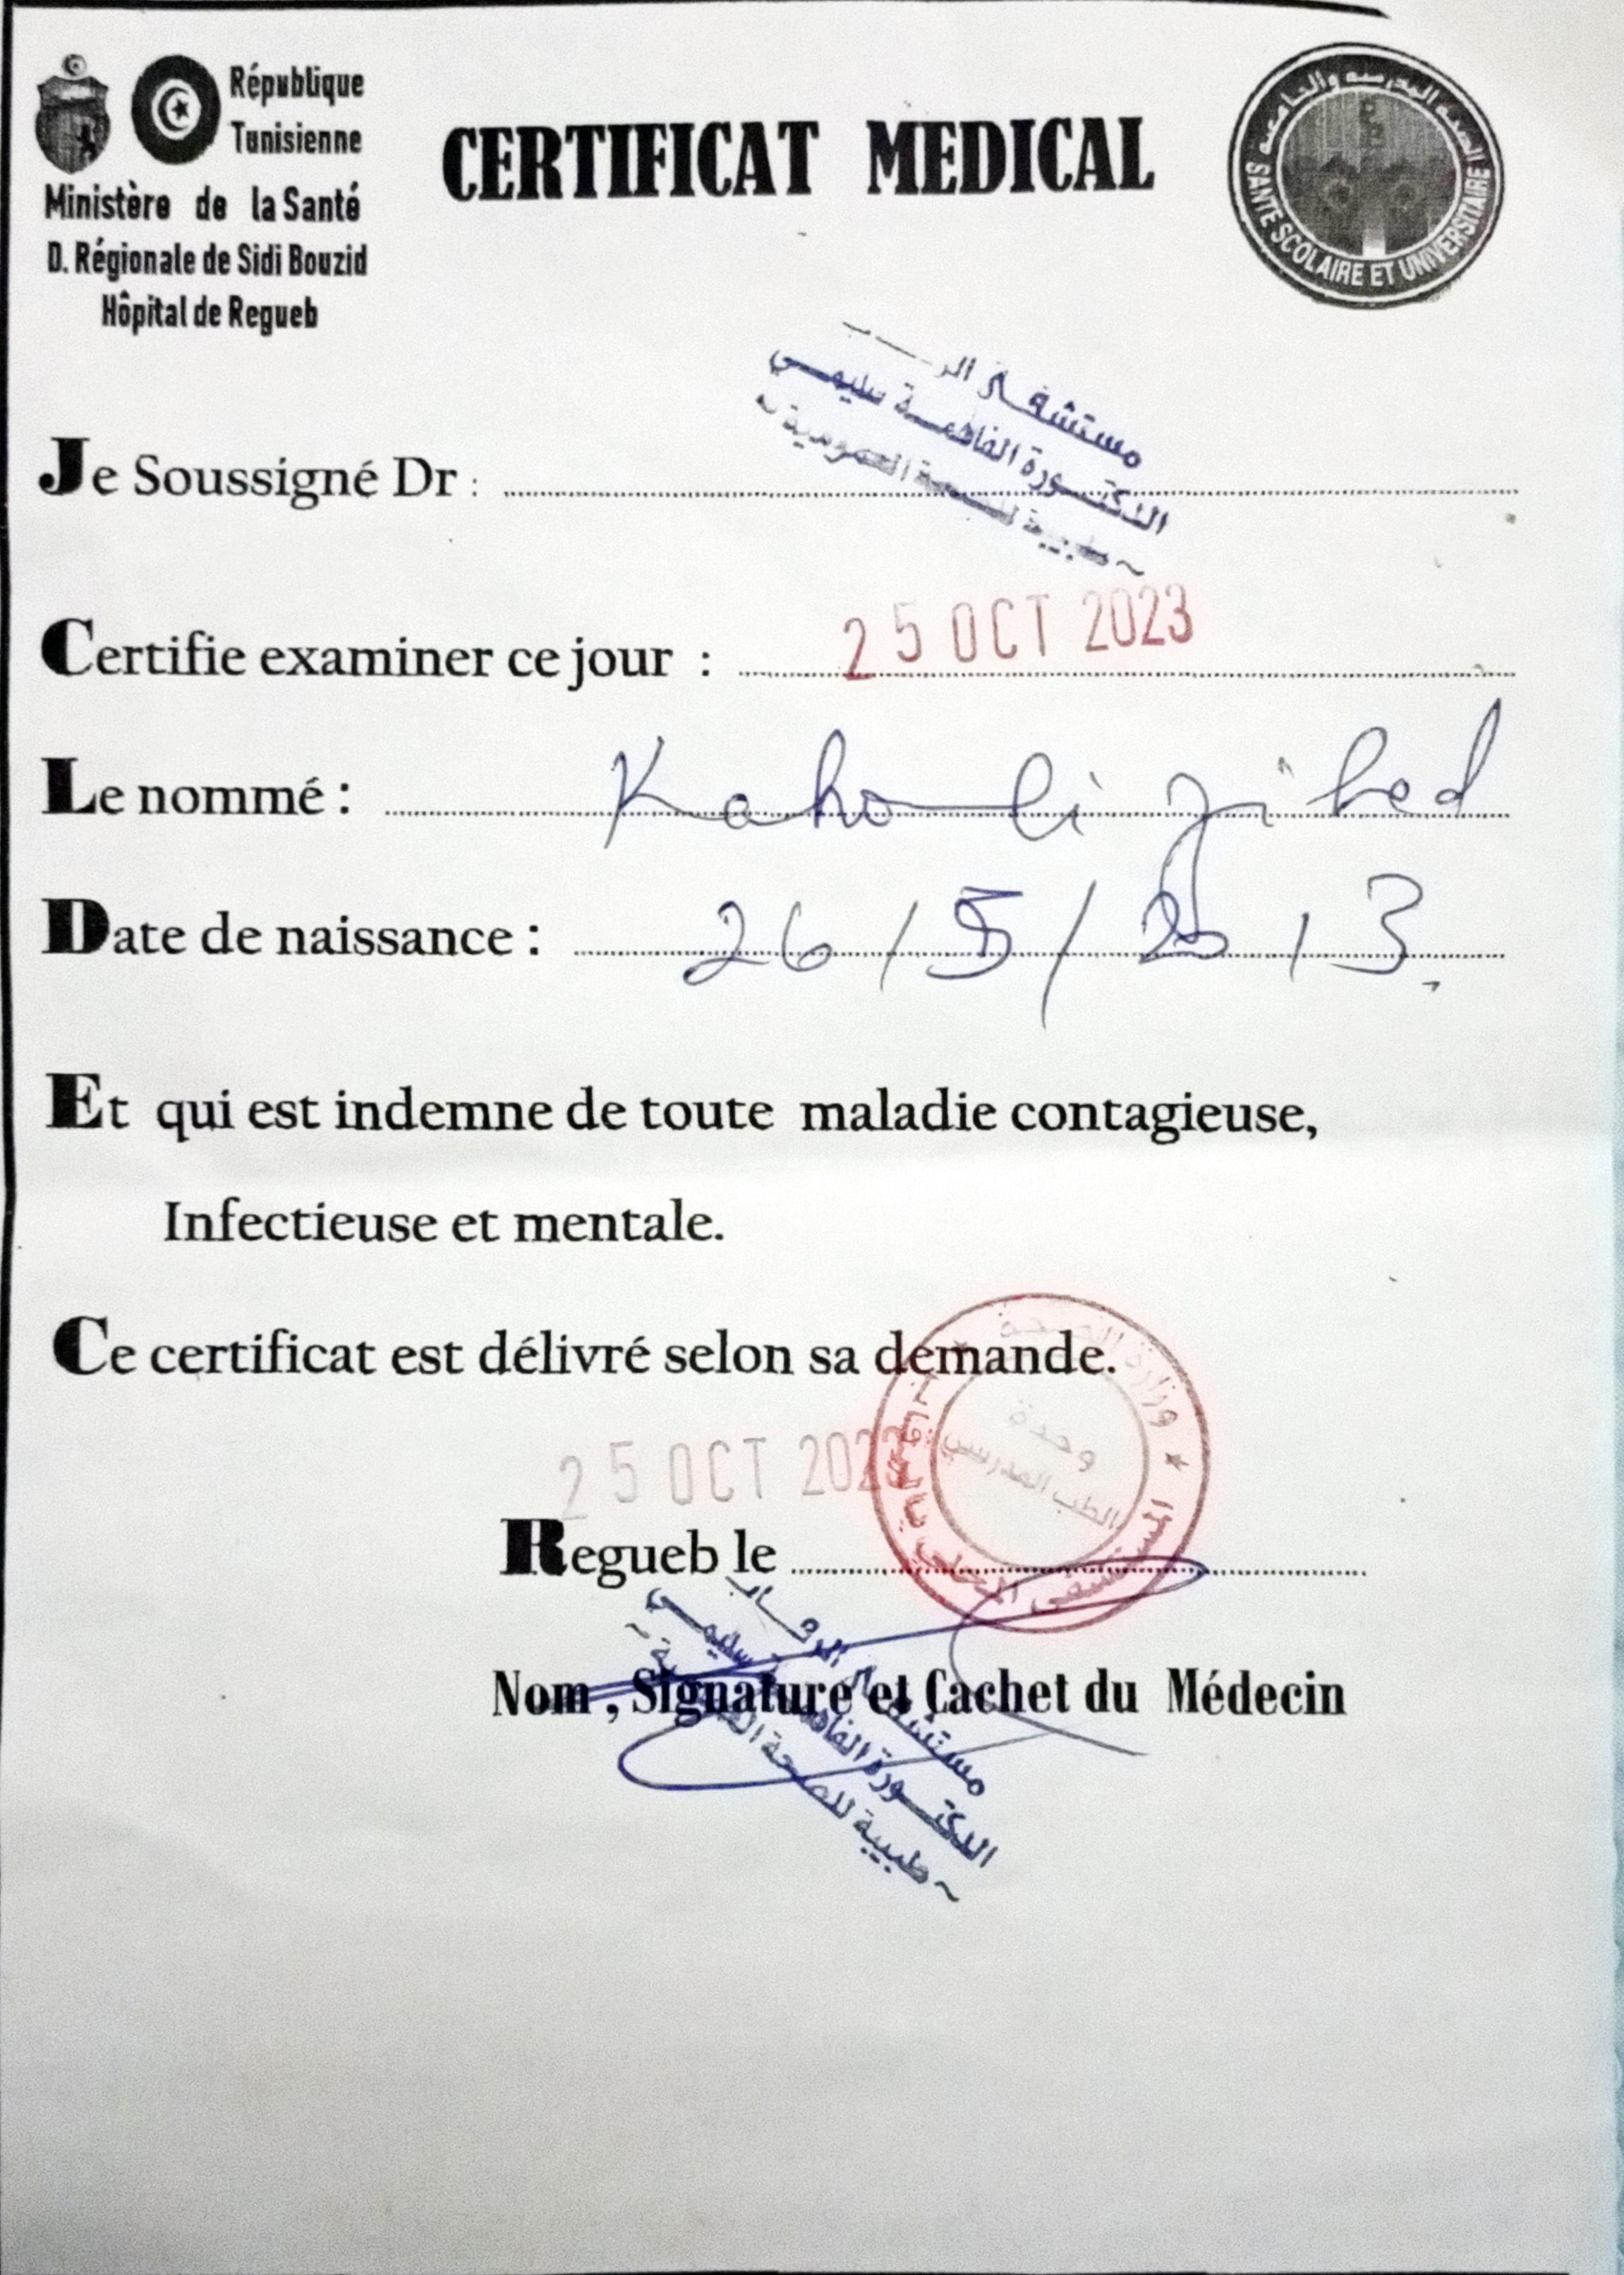 République
Tunisienne
Ministère de la Santé
D. Régionale de Sidi Bouzid
Hôpital de Regueb
CERTIFICAT MEDICAL
SANTE SCOLAIRE ET UNIVERSITAIRE
مستشفى
الدكتورة الفاهمة سليمي
~ طبيبة للصحة العمومية ~
Je Soussigné Dr :
Certifie examiner ce jour : 25 OCT 2023
Le nommé : Kahouli jihed
Date de naissance : 26/5/2013
Et qui est indemne de toute maladie contagieuse,
Infectieuse et mentale.
Ce certificat est délivré selon sa demande.
وزارة الصحة
المستشفى المحلي بالرقاب
وحدة
الطب المدرسي
25 OCT 202
Regueb le
Nom , Signature et Cachet du Médecin
مستشفى الرقاب
الدكتورة الفاهمة سليمي
~ طبيبة للصحة